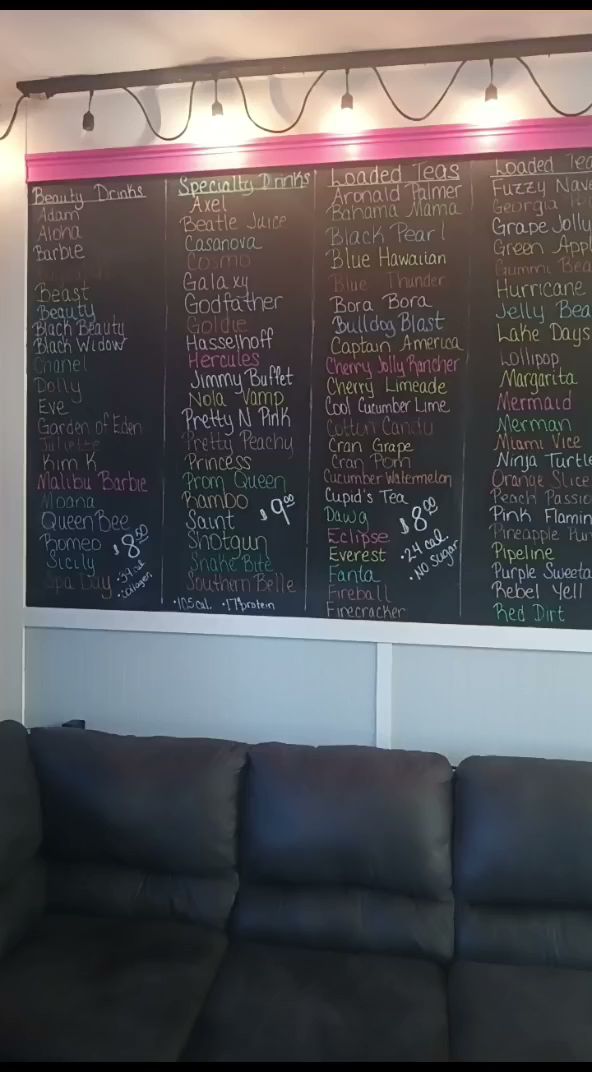 Beauty Drinks
Adam
Aloha
Barbie
Beast
Beauty
Black Beauty
Black Widow
Chanel
Dolly
Eve
Garden of Eden
Juliette
Kim K
Malibu Barbie
Moana
Queen Bee
Romeo
Sicily
Spa Day
$8.50
•34 cal
•collagen
Specialty Drinks
Axel
Beatle Juice
Casanova
Cosmo
Galaxy
Godfather
Goldie
Hasselhoff
Hercules
Jimmy Buffet
Nola Vamp
Pretty N Pink
Pretty Peachy
Princess
Prom Queen
Rambo
Saint
Shotgun
Snake Bite
Southern Belle
$9.00
•105cal. •17g protein
Loaded Teas
Aronald Palmer
Bahama Mama
Black Pearl
Blue Hawaiian
Blue Thunder
Bora Bora
Bulldog Blast
Captain America
Cherry Jolly Rancher
Cherry Limeade
Cool Cucumber Lime
Cotton Candy
Cran Grape
Cran Pom
Cucumber Watermelon
Cupid's Tea
Dawg
Eclipse
Everest
Fanta
Fireball
Firecracker
$8.00
•24 cal.
•No sugar
Loaded Tea
Fuzzy Nave
Georgia
Grape Jolly
Green Appl
Gummi Bea
Hurricane
Jelly Bea
Lake Days
Lollipop
Margarita
Mermaid
Merman
Miami Vice
Ninja Turtle
Orange Slice
Peach Passio
Pink Flamin
Pineapple
Pipeline
Purple Sweeta
Rebel Yell
Red Dirt